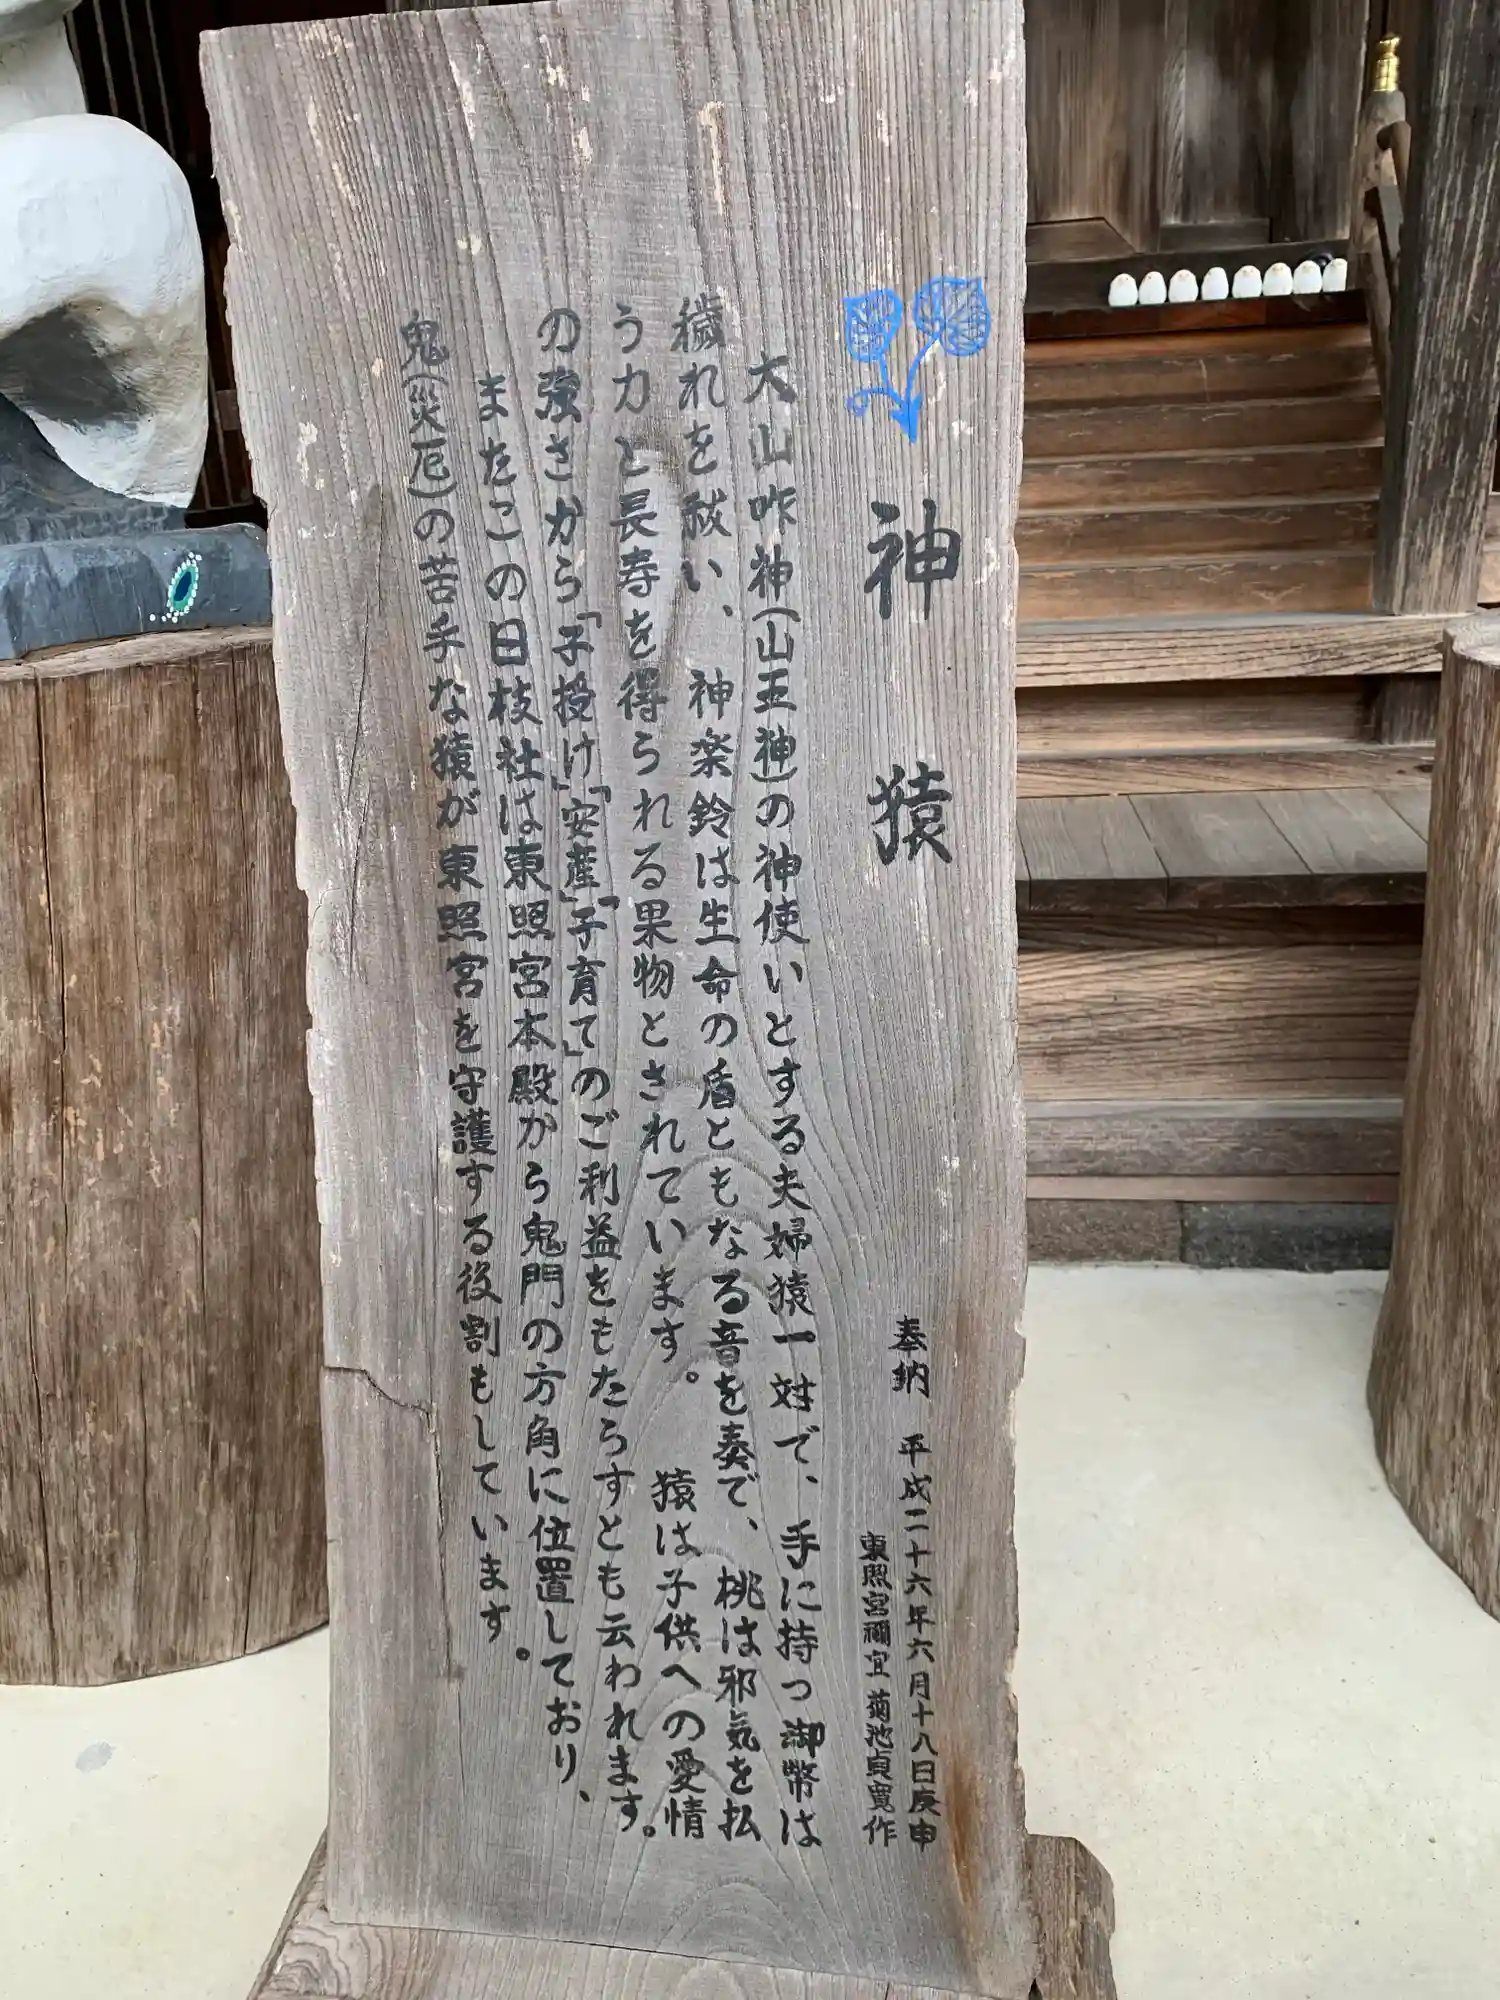 神猿
奉納 平成二十六年六月十八日庚申
東照宮禰宜 菊池貞寛作
大山咋神(山王神)の神使いとする夫婦猿一対で、手に持つ御幣は
穢れを祓い、神楽鈴は生命の盾ともなる音を奏で、桃は邪気を払
う力と長寿を得られる果物とされています。 猿は子供への愛情
の強さから「子授け」「安産」「子育て」のご利益をもたらすとも云われます。
またこの日枝社は東照宮本殿から鬼門の方角に位置しており、
鬼(災厄)の苦手な猿が東照宮を守護する役割もしています。